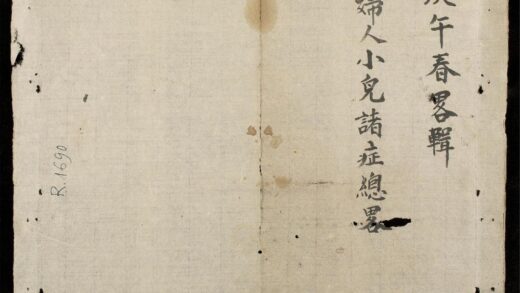 午春畧輯
婦人小兒諸症總畧
R.1690